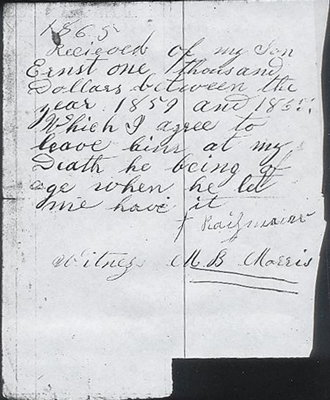 1865
Recieved of my Son
Ernst one Thousand
Dollars between the
year 1859 and 1865
Which I agree to
leave him at my
Death he being of
age when he let
me have it
Witness M. B Morris